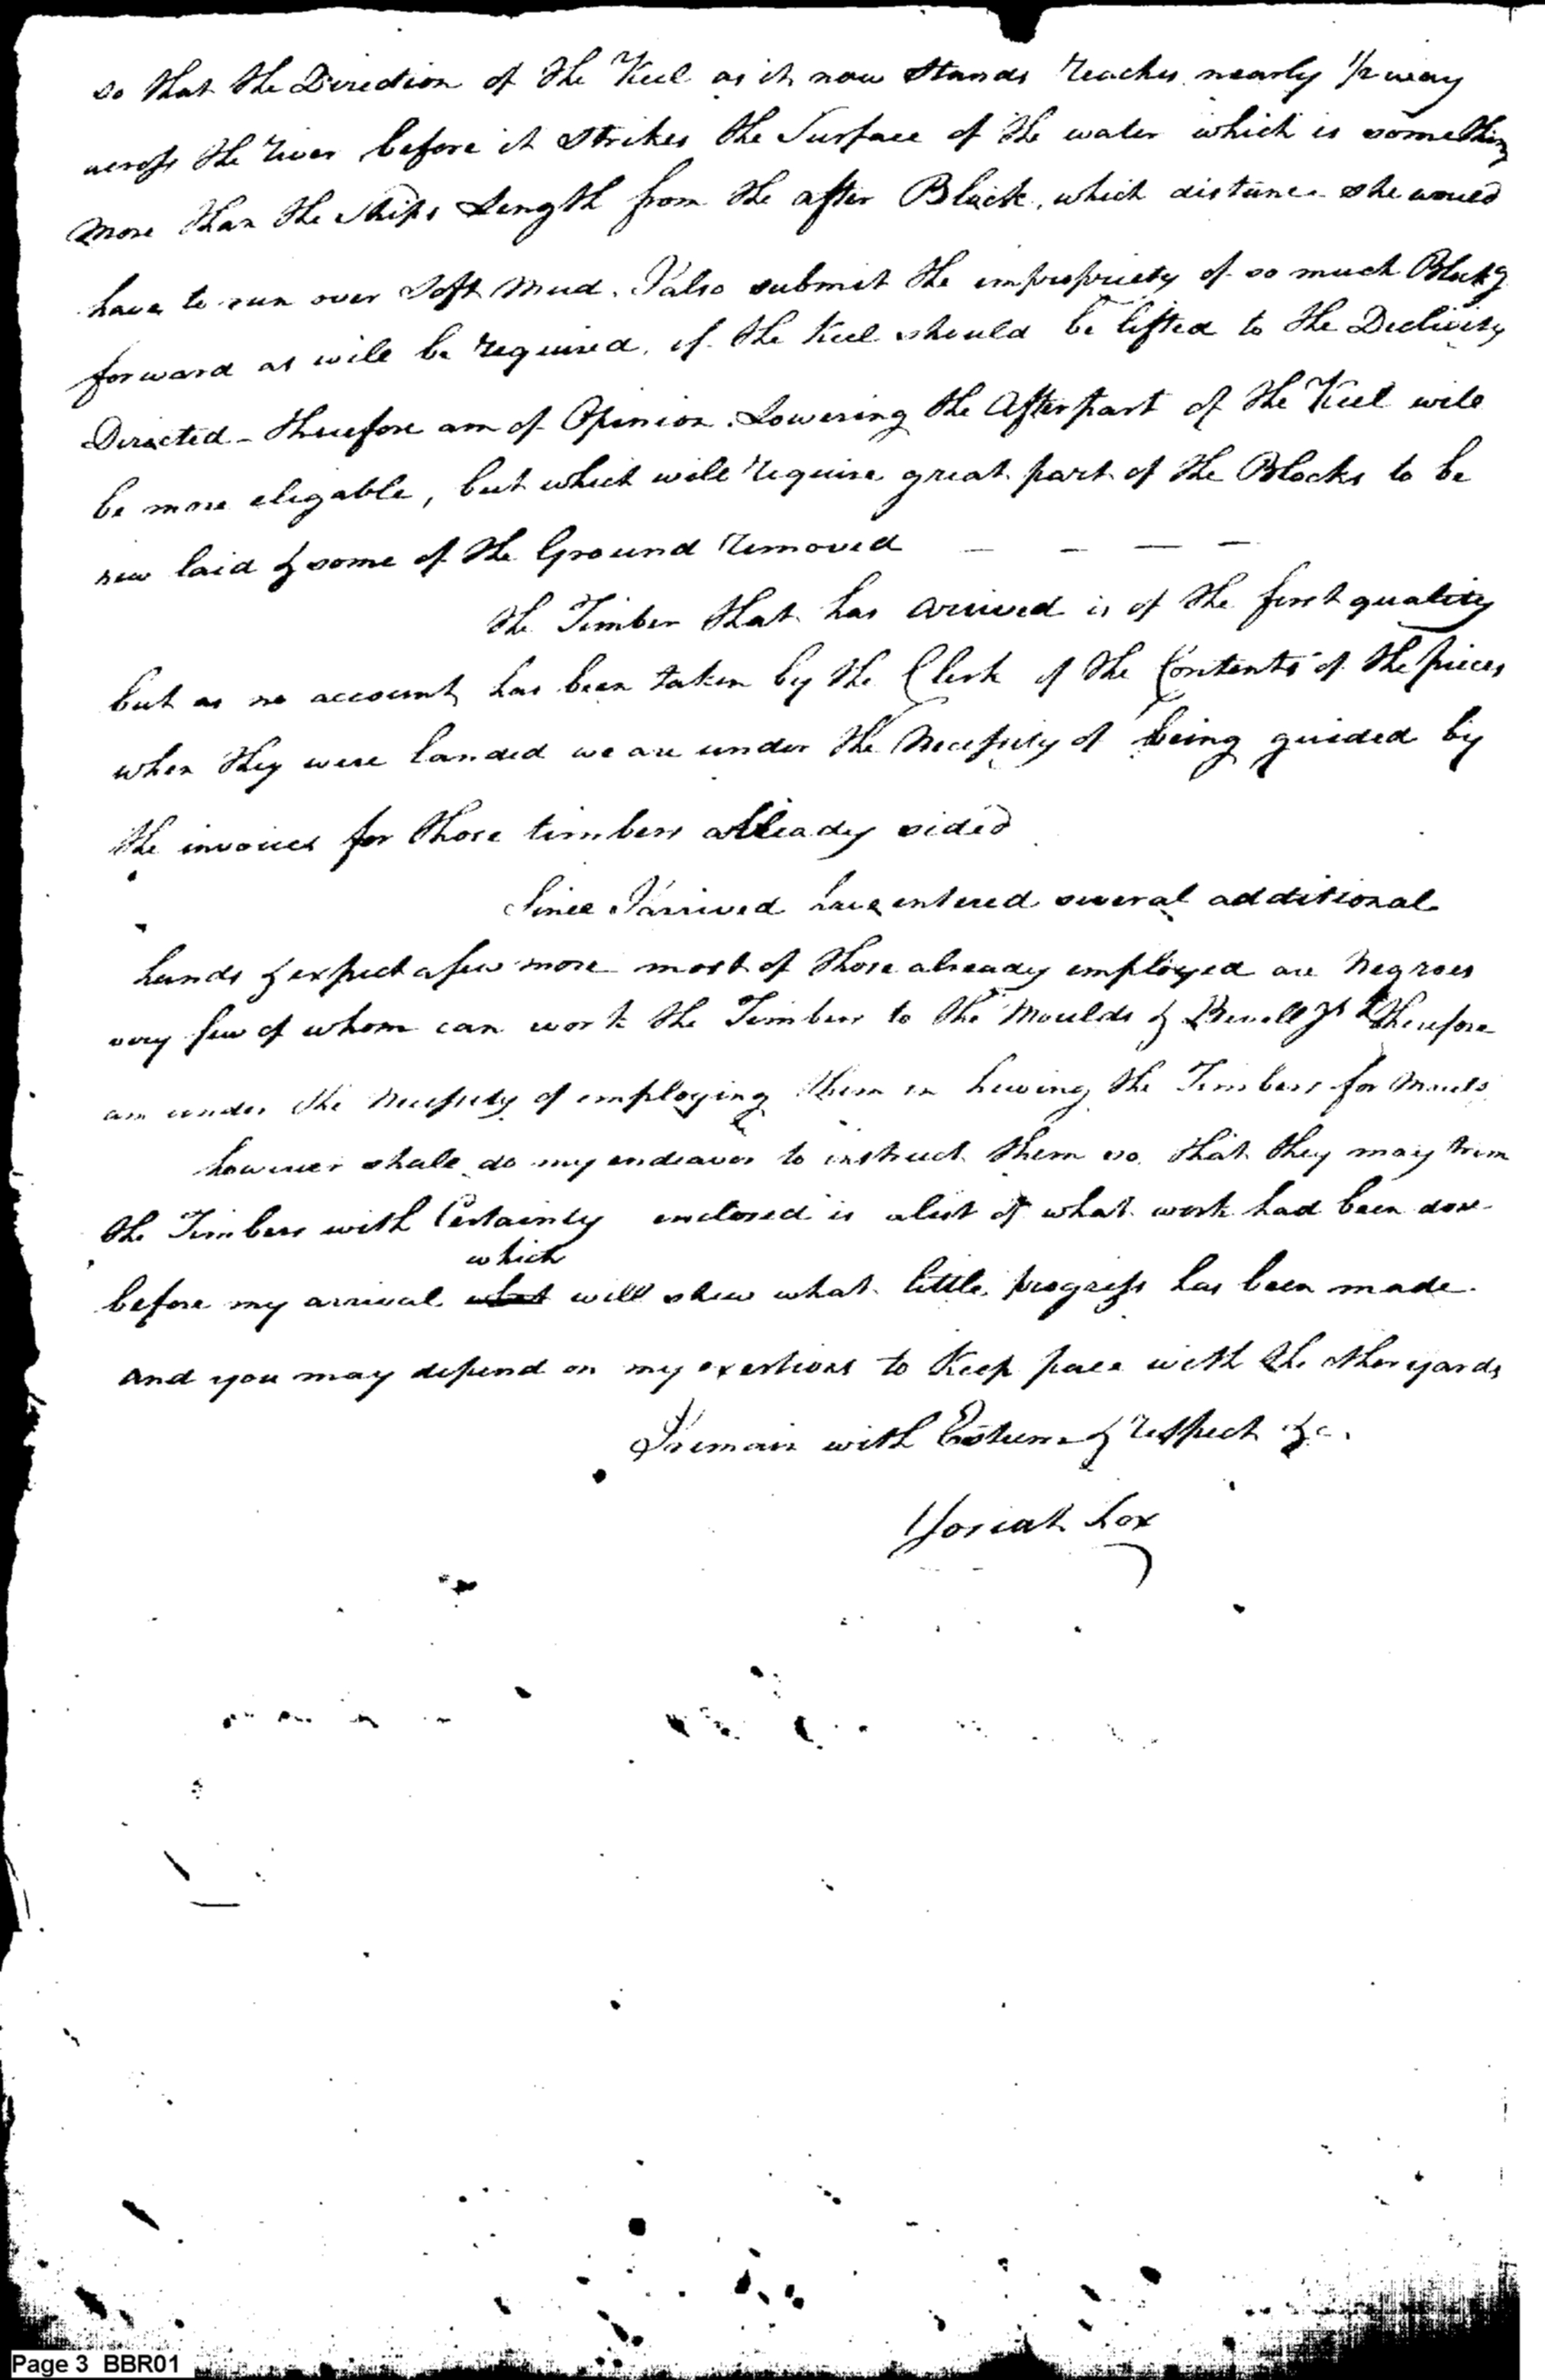 so that the Direction of the Keel as it now stands reaches nearly 1/2 way
across the river before it strikes the Surface of the water which is something
more than the ships Length from the after Block, which distance she would
have to run over soft mud. I also submit the impropriety of so much Blockg
forward as will be required, if the Keel should be lifted to the Declivity
Directed - therefore am of Opinion. Lowering the After part of the Keel will
be more eligable, but which will require great part of the Blocks to be
new laid & some of the Ground removed — — — —
the Timber that has arrived is of the first quality
but as no account has been taken by the Clerk of the Contents of the pieces
when they were landed we are under the necessity of being guided by
the invoices for those timbers already sided
Since I arrived have entered several additional
hands & expect a few more most of those already employed are Negroes
very few of whom can work the Timbers to the moulds & therefore
am under the necessity of employing them in hewing the Timbers for
however shall do my endeavor to instruct them so that they may trim
the Timbers with Certainty enclosed is a list of what work had been done
which
before my arrival what will shew what little progress has been made
and you may depend on my exertions to Keep pace with the other yards
I remain with Esteem & respect &c.
Josiah Fox
Page 3 BBR01